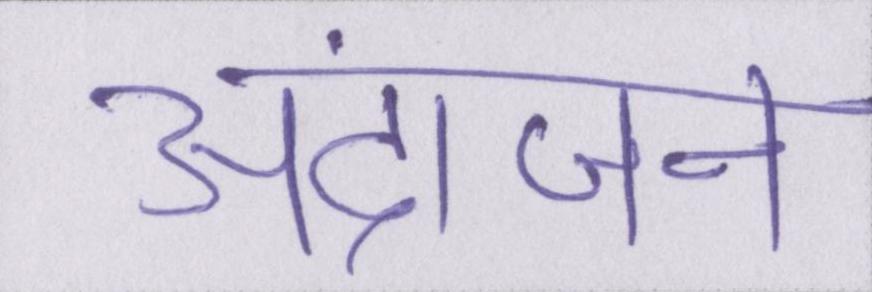 अंदाजन